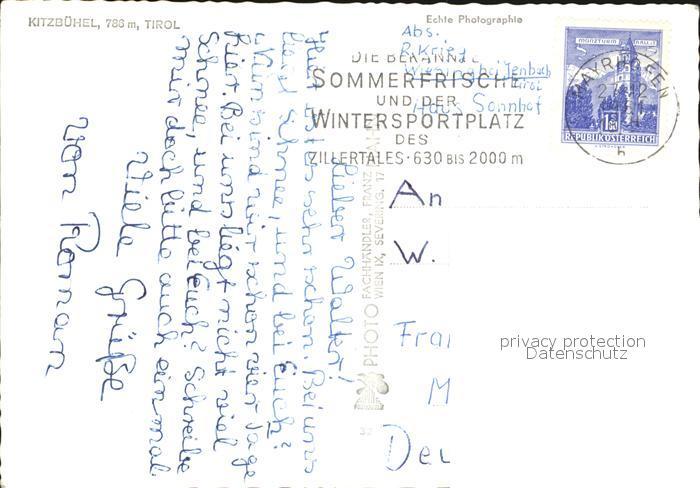 KITZBÜHEL, 786 m, TIROL
Echte Photographie
Abs.
R. Krieg
Tirol
Haus Sonnhof
DIE BEKANNTE
SOMMERFRISCHE
UND DER
WINTERSPORTPLATZ
DES
ZILLERTALES · 630 BIS 2000 m
MAYRHOFEN
h
MÜNZTURM HALL
S 1.80
REPUBLIK ÖSTERREICH
Lieber Walter!
Hier ist es sehr schön. Bei uns
liegt Schnee, und bei Euch?
Nun sind wir schon vier Tage
hier. Bei uns liegt nicht viel
Schnee, und bei Euch? Schreibe
mir doch bitte auch einmal.
Viele Grüße
von Roman
PHOTO
FACHHÄNDLER, FRANZ
WIEN IX, SEVERING. 17
An
W.
Fra
M
Deu
privacy protection
Datenschutz